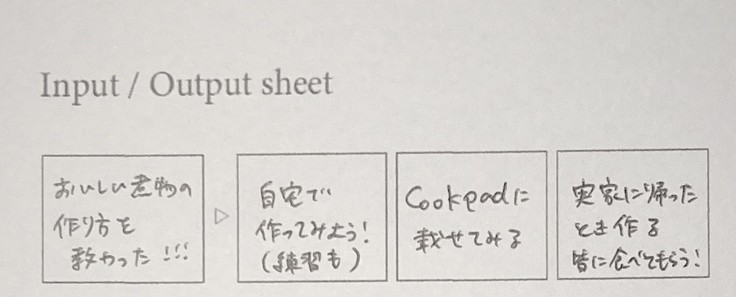 Input / Output sheet
おいしい煮物の
作り方を
教わった!!!
自宅で
作ってみよう!
(練習も)
Cookpadに
載せてみる
実家に帰った
とき作る
皆に食べてもらう!